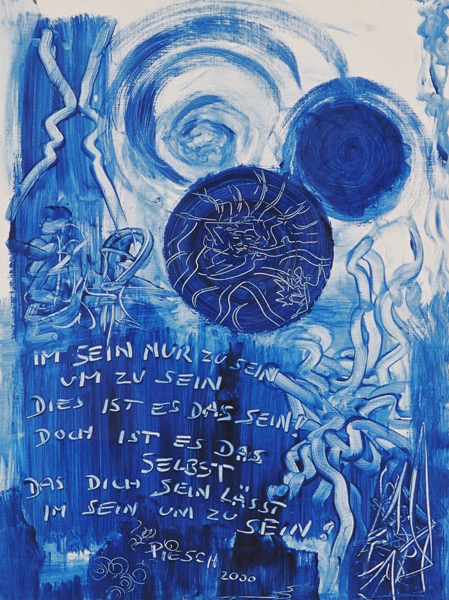 IM SEIN NUR ZU SEIN
UM ZU SEIN
DIES IST ES DAS SEIN!
DOCH IST ES DAS
SELBST
DAS DICH SEIN LÄSST
IM SEIN UM ZU SEIN!
PIESCH
2000